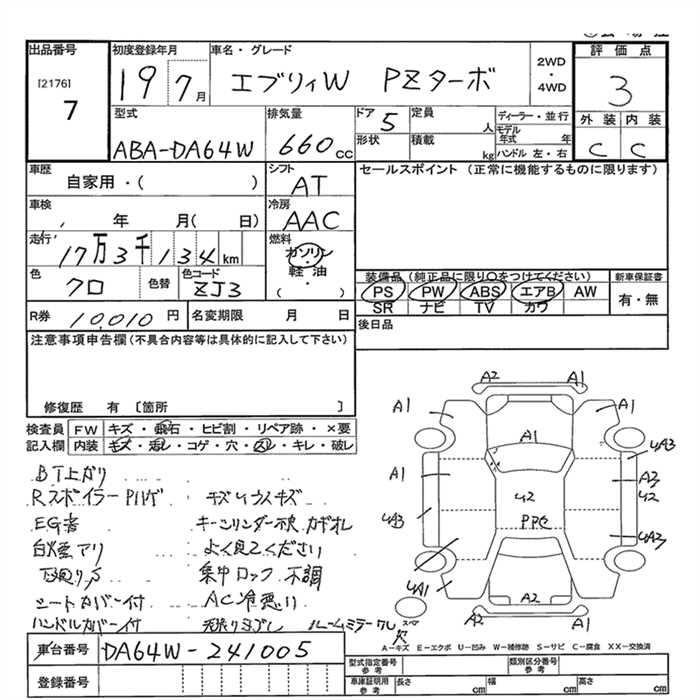 出品番号 初度登録年月 車名・グレード 評価点
[2176] 7
19 7月 エブリィW PZターボ 2WD・4WD 3
型式 排気量 ドア 定員 ディーラー・並行 外装 内装
ABA-DA64W 660cc 5 人 モデル年式 年
形状 積載 kg ハンドル 左・右 C C
車歴 シフト セールスポイント(正常に機能するものに限ります)
自家用・( ) AT
車検 冷房
年 月( 日) AAC
走行 燃料
17万3千134km ガソリン・軽油
色 色替 色コード ( )
クロ ZJ3
装備品(純正品に限り〇をつけてください) 新車保証書
PS PW ABS エアB AW 有・無
SR ナビ TV カワ
R券 10,010円 名変期限 月 日
後日品
注意事項申告欄(不具合内容等は具体的に記入して下さい)
修復歴 有 〔箇所 〕
検査員記入欄 FW キズ・飛石・ヒビ割・リペア跡・×要
内装 キズ・汚レ・コゲ・穴・スレ・キレ・破レ
BT上がり
Rスポイラー キズ
EG音 キーシリンダー カギ
白煙アリ よく見てください
下廻りS 集中ロック不調
シートカバー付 AC冷悪い
ハンドルカバー付 ルームミラー
A2 A1
A1 A1 A1
A1 A3
U2 U2
UA3 PPC UA3
UA1 A2
スペア A2 A1
A-キズ E-エクボ U-凹み W-補修跡 S-サビ C-腐食 XX-交換済
車台番号 DA64W-241005
登録番号
型式指定番号 参考 類別区分番号 参考
車庫証明用 参考 長さ cm 幅 cm 高さ cm